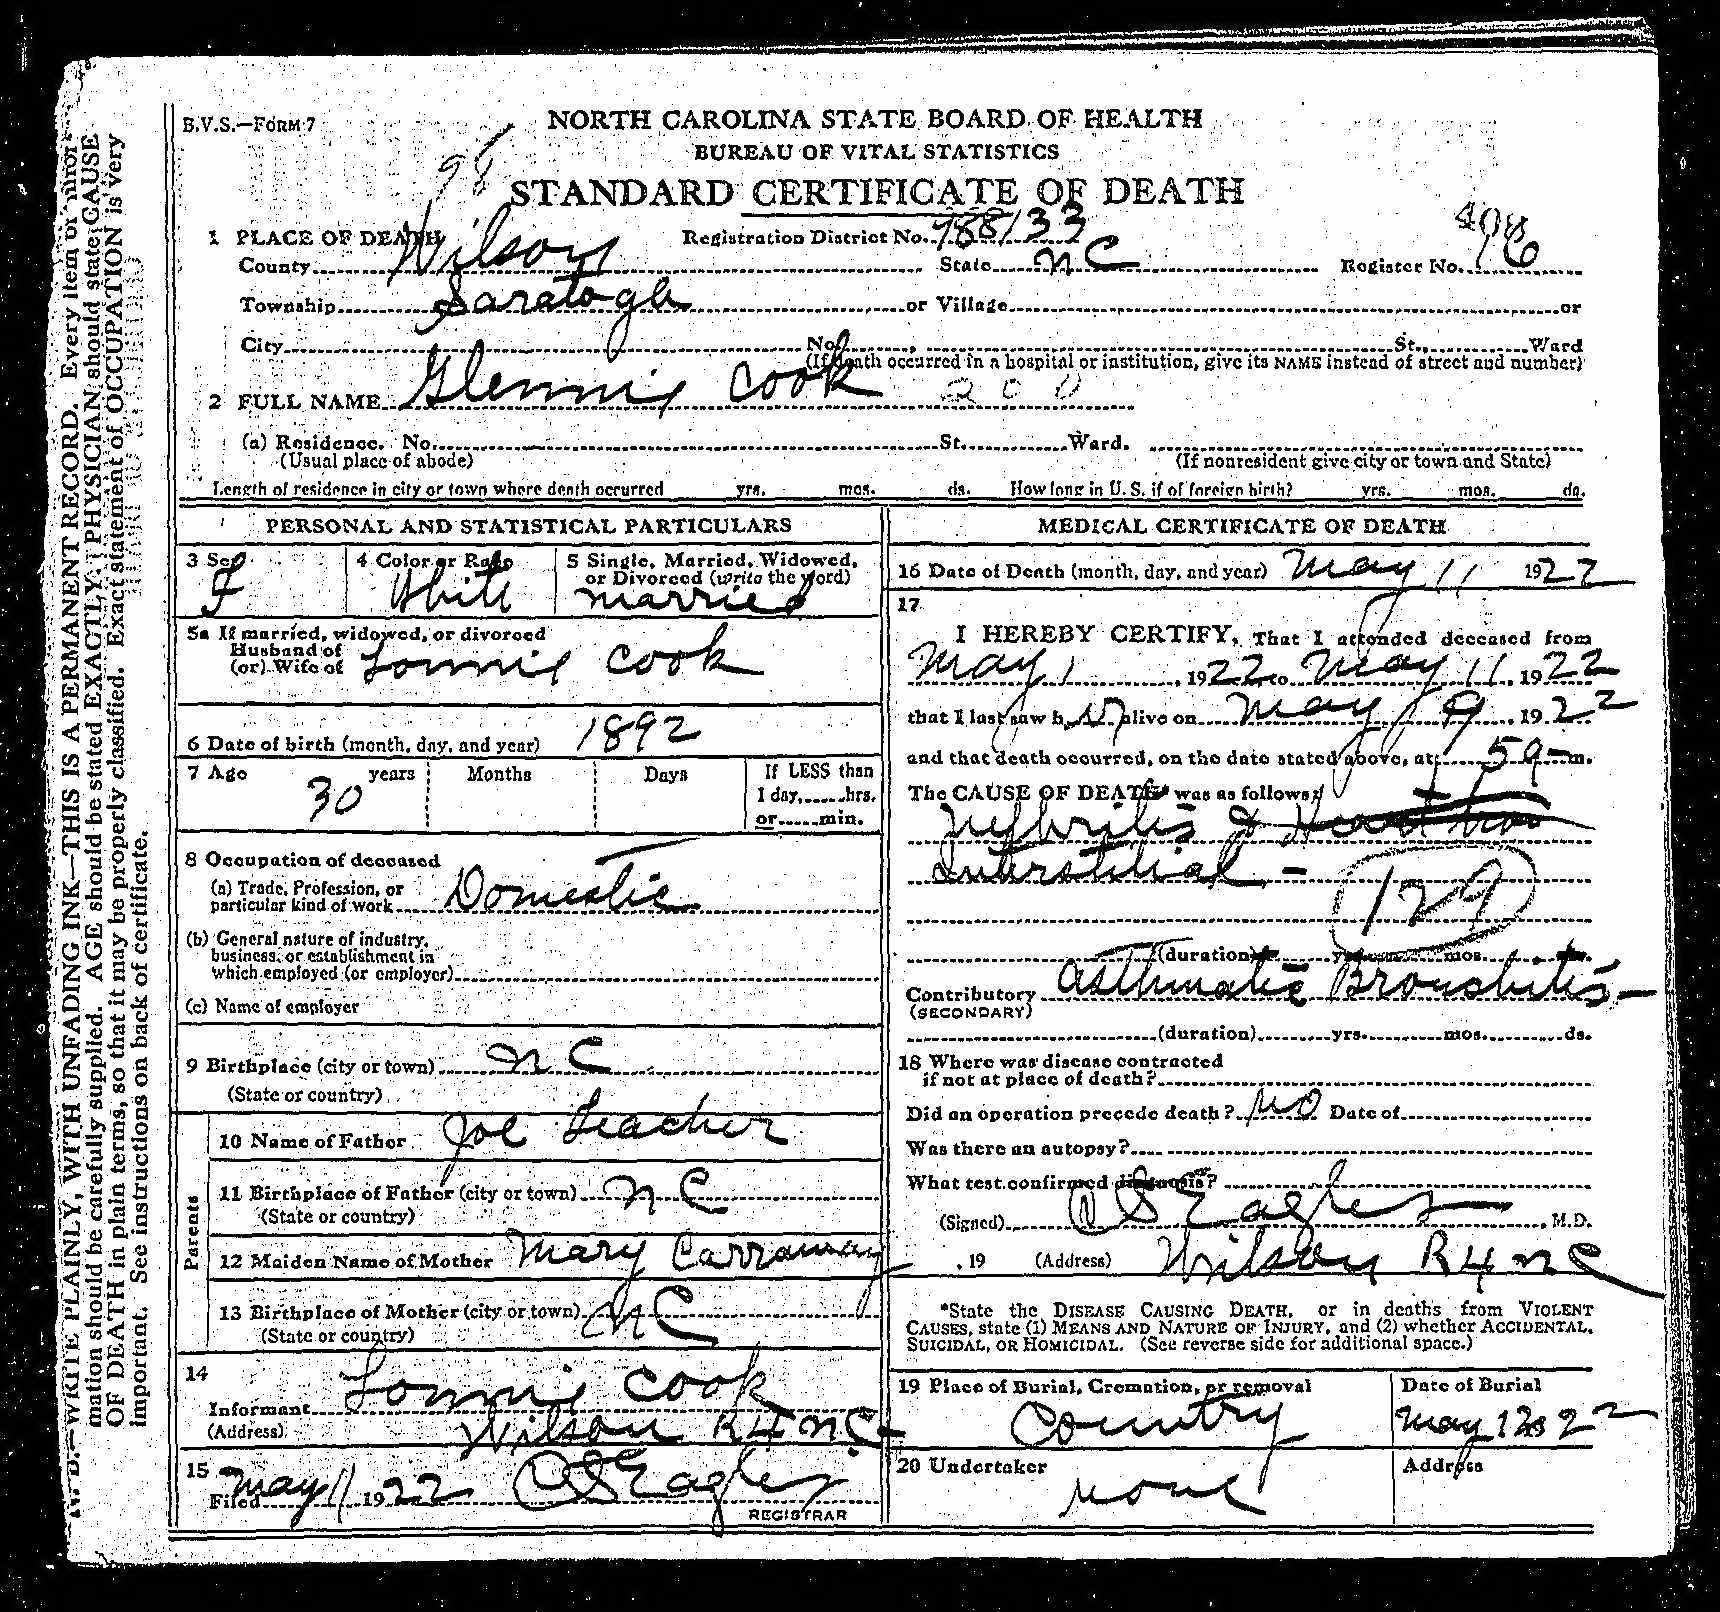 B.V.S.—FORM 7
NORTH CAROLINA STATE BOARD OF HEALTH
BUREAU OF VITAL STATISTICS
98
STANDARD CERTIFICATE OF DEATH
1 PLACE OF DEATH Registration District No. 988133 408
County Wilson State NC Register No. 16
Township Saratoga or Village or
City No. St., Ward
(If death occurred in a hospital or institution, give its NAME instead of street and number)
2 FULL NAME Glennie Cook 200
(a) Residence. No. St. Ward.
(Usual place of abode) (If nonresident give city or town and State)
Length of residence in city or town where death occurred yrs. mos. ds. How long in U. S. if of foreign birth? yrs. mos. ds.
PERSONAL AND STATISTICAL PARTICULARS
3 Sex 4 Color or Race 5 Single, Married, Widowed,
or Divorced (write the word)
F White married
5a If married, widowed, or divorced
Husband of
(or) Wife of Lonnie Cook
6 Date of birth (month, day, and year) 1892
7 Age years Months Days If LESS than
30 1 day, hrs.
or min.
8 Occupation of deceased
(a) Trade, Profession, or
particular kind of work Domestic
(b) General nature of industry,
business, or establishment in
which employed (or employer)
(c) Name of employer
9 Birthplace (city or town) NC
(State or country)
Parents
10 Name of Father Joe Teacher
11 Birthplace of Father (city or town) NC
(State or country)
12 Maiden Name of Mother Mary Carraway
13 Birthplace of Mother (city or town) NC
(State or country)
14
Informant Lonnie Cook
(Address) Wilson R4 NC
15
Filed May 11 1922 CS Eagles
REGISTRAR
MEDICAL CERTIFICATE OF DEATH
16 Date of Death (month, day, and year) May 11 1922
17
I HEREBY CERTIFY, That I attended deceased from
May 1, 1922 to May 11, 1922
that I last saw h alive on May 9, 1922
and that death occurred, on the date stated above, at 5 a m.
The CAUSE OF DEATH* was as follows:
Nephritis &
Interstitial —
129
(duration) yrs. mos. ds.
Contributory Asthmatic Bronchitis —
(SECONDARY)
(duration) yrs. mos. ds.
18 Where was disease contracted
if not at place of death?
Did an operation precede death? No Date of
Was there an autopsy?
What test confirmed diagnosis?
(Signed) CS Eagles, M.D.
, 19 (Address) Wilson R4 NC
*State the DISEASE CAUSING DEATH, or in deaths from VIOLENT
CAUSES, state (1) MEANS AND NATURE OF INJURY, and (2) whether ACCIDENTAL,
SUICIDAL, OR HOMICIDAL. (See reverse side for additional space.)
19 Place of Burial, Cremation, or removal Date of Burial
Country May 12 22
20 Undertaker Address
None
N. B.—WRITE PLAINLY, WITH UNFADING INK—THIS IS A PERMANENT RECORD. Every item of infor-
mation should be carefully supplied. AGE should be stated EXACTLY. PHYSICIAN should state CAUSE
OF DEATH in plain terms, so that it may be properly classified. Exact statement of OCCUPATION is very
important. See instructions on back of certificate.